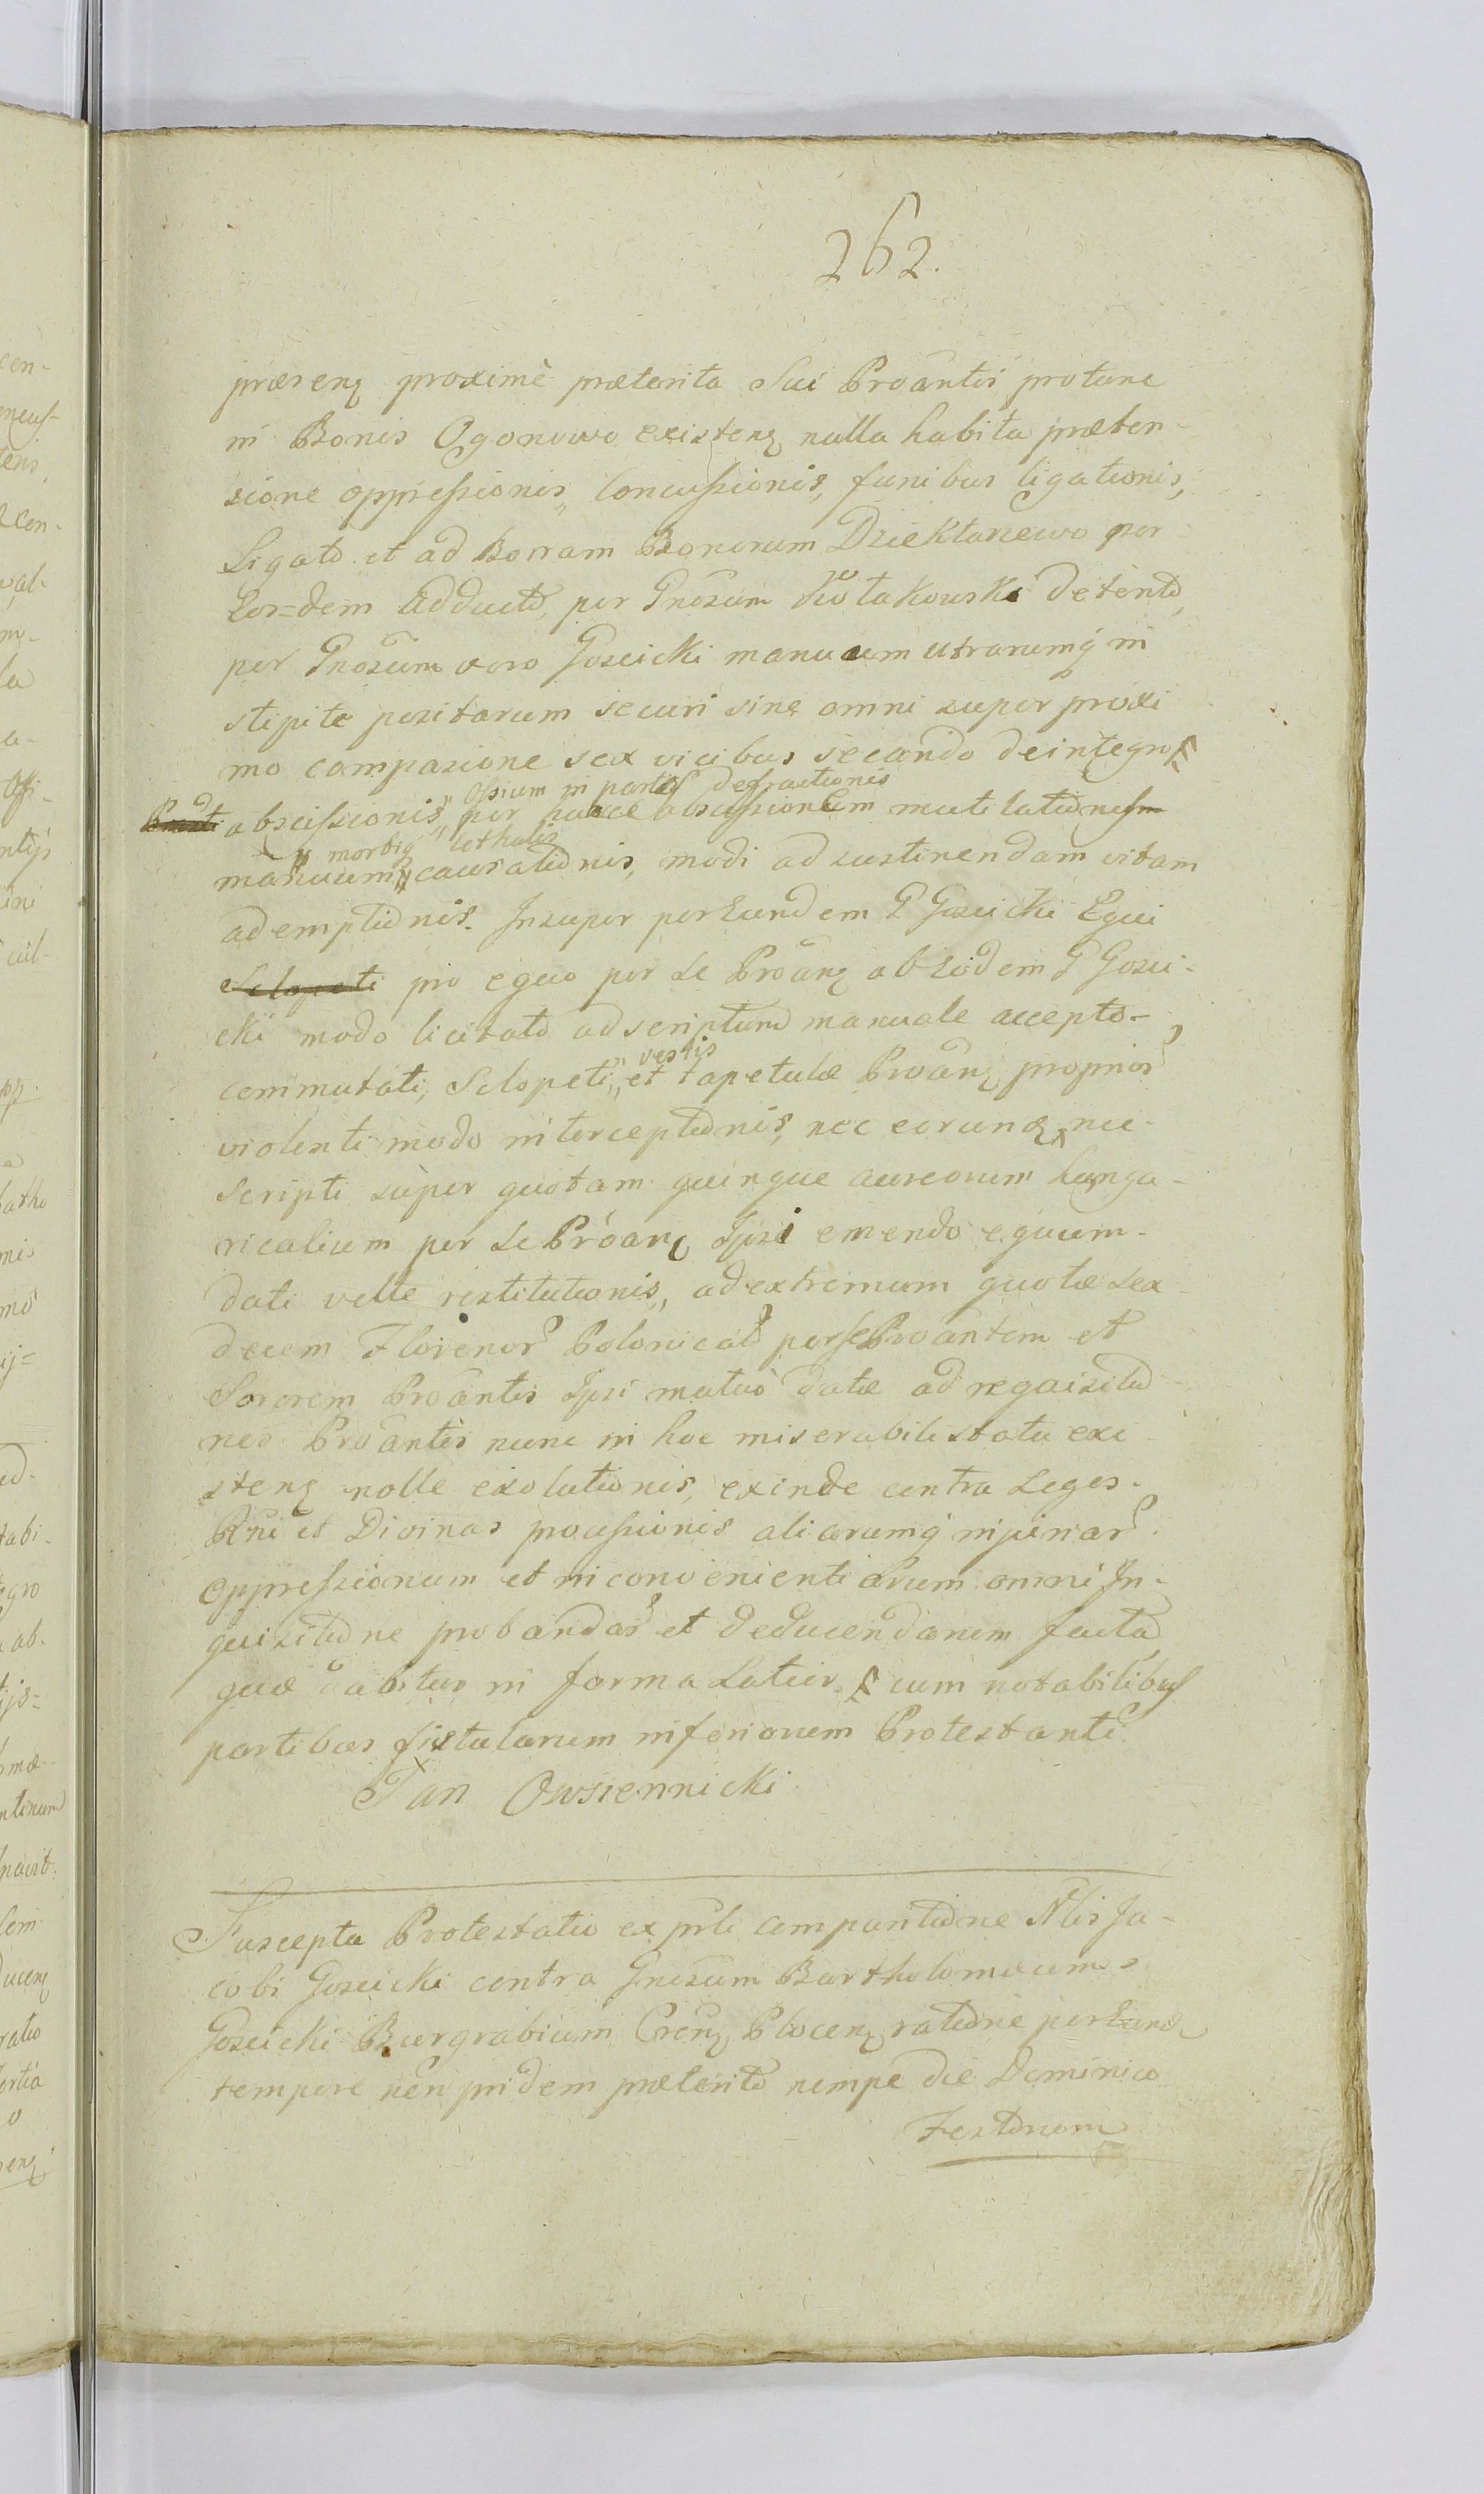 262.
præsenȩ proximè præterita Sui Proantis protunc
in Bonis Ogonowo existenȩ nulla habita præten-
sione oppressionis, Concussionis, funibus ligationis,
Ligato et ad Bonorum Dziektarzewo per
Eos=dem adducto, per Gnosum Kołakowski detento,
per Gnosum vero Gosicki manuum utrarumq in
stipite positarum securi sine omni super proxi
mo compasione sex vicibus secando deintegro
ossium in partes defractionis
abscissionis, per hance abscissionem mutilationis
morbiq lethalis
manuum causationis, modi ad sustinendam vitam
ademptionis. Insuper per Eundem G Gosicki Equi
Sclopeti pro equo per Se Proanȩ ab Eodem G Gosci-
cki modo licitato ad scriptum manuale accepto-
vestis
commutati, Sclopeti, et tapetulæ Proanȩ propriar
violenti modo interceptionis, nec eorundȩ nec-
Scripti super quotam quinque aureorum hunga-
ricalium per Se Proanȩ Ipsi emendo equum-
dati velle restitutionis, ad extremum quotæ sex
decem Florenor Polonical per se Proantem et
Sororem Proantis Ipsi mutuo datæ ad requisitio
nes Proantis nunc in hoc miserabili statu exi
stenȩ nolle exolutionis, exinde contra Leges.
Rni et Divinas processionis aliarumq injuriar
oppressionum et inconvenientiarum omni In-
quisitione probandar et deducendarum facta
quæ dabitur in forma Latior. cum notabilibus
partibus fistularum inferiorum Protestanti
Jan Owsiennicki
Suscepta Protestatio ex prli comparitione Nlis Ja-
cobi Goscicki contra Gnosum Bartholomæum
Goscicki Burgrabium Crenȩ Plocenȩ ratione per Eundȩ
tempore non pridem præterito nempe die Dominico
Festorum